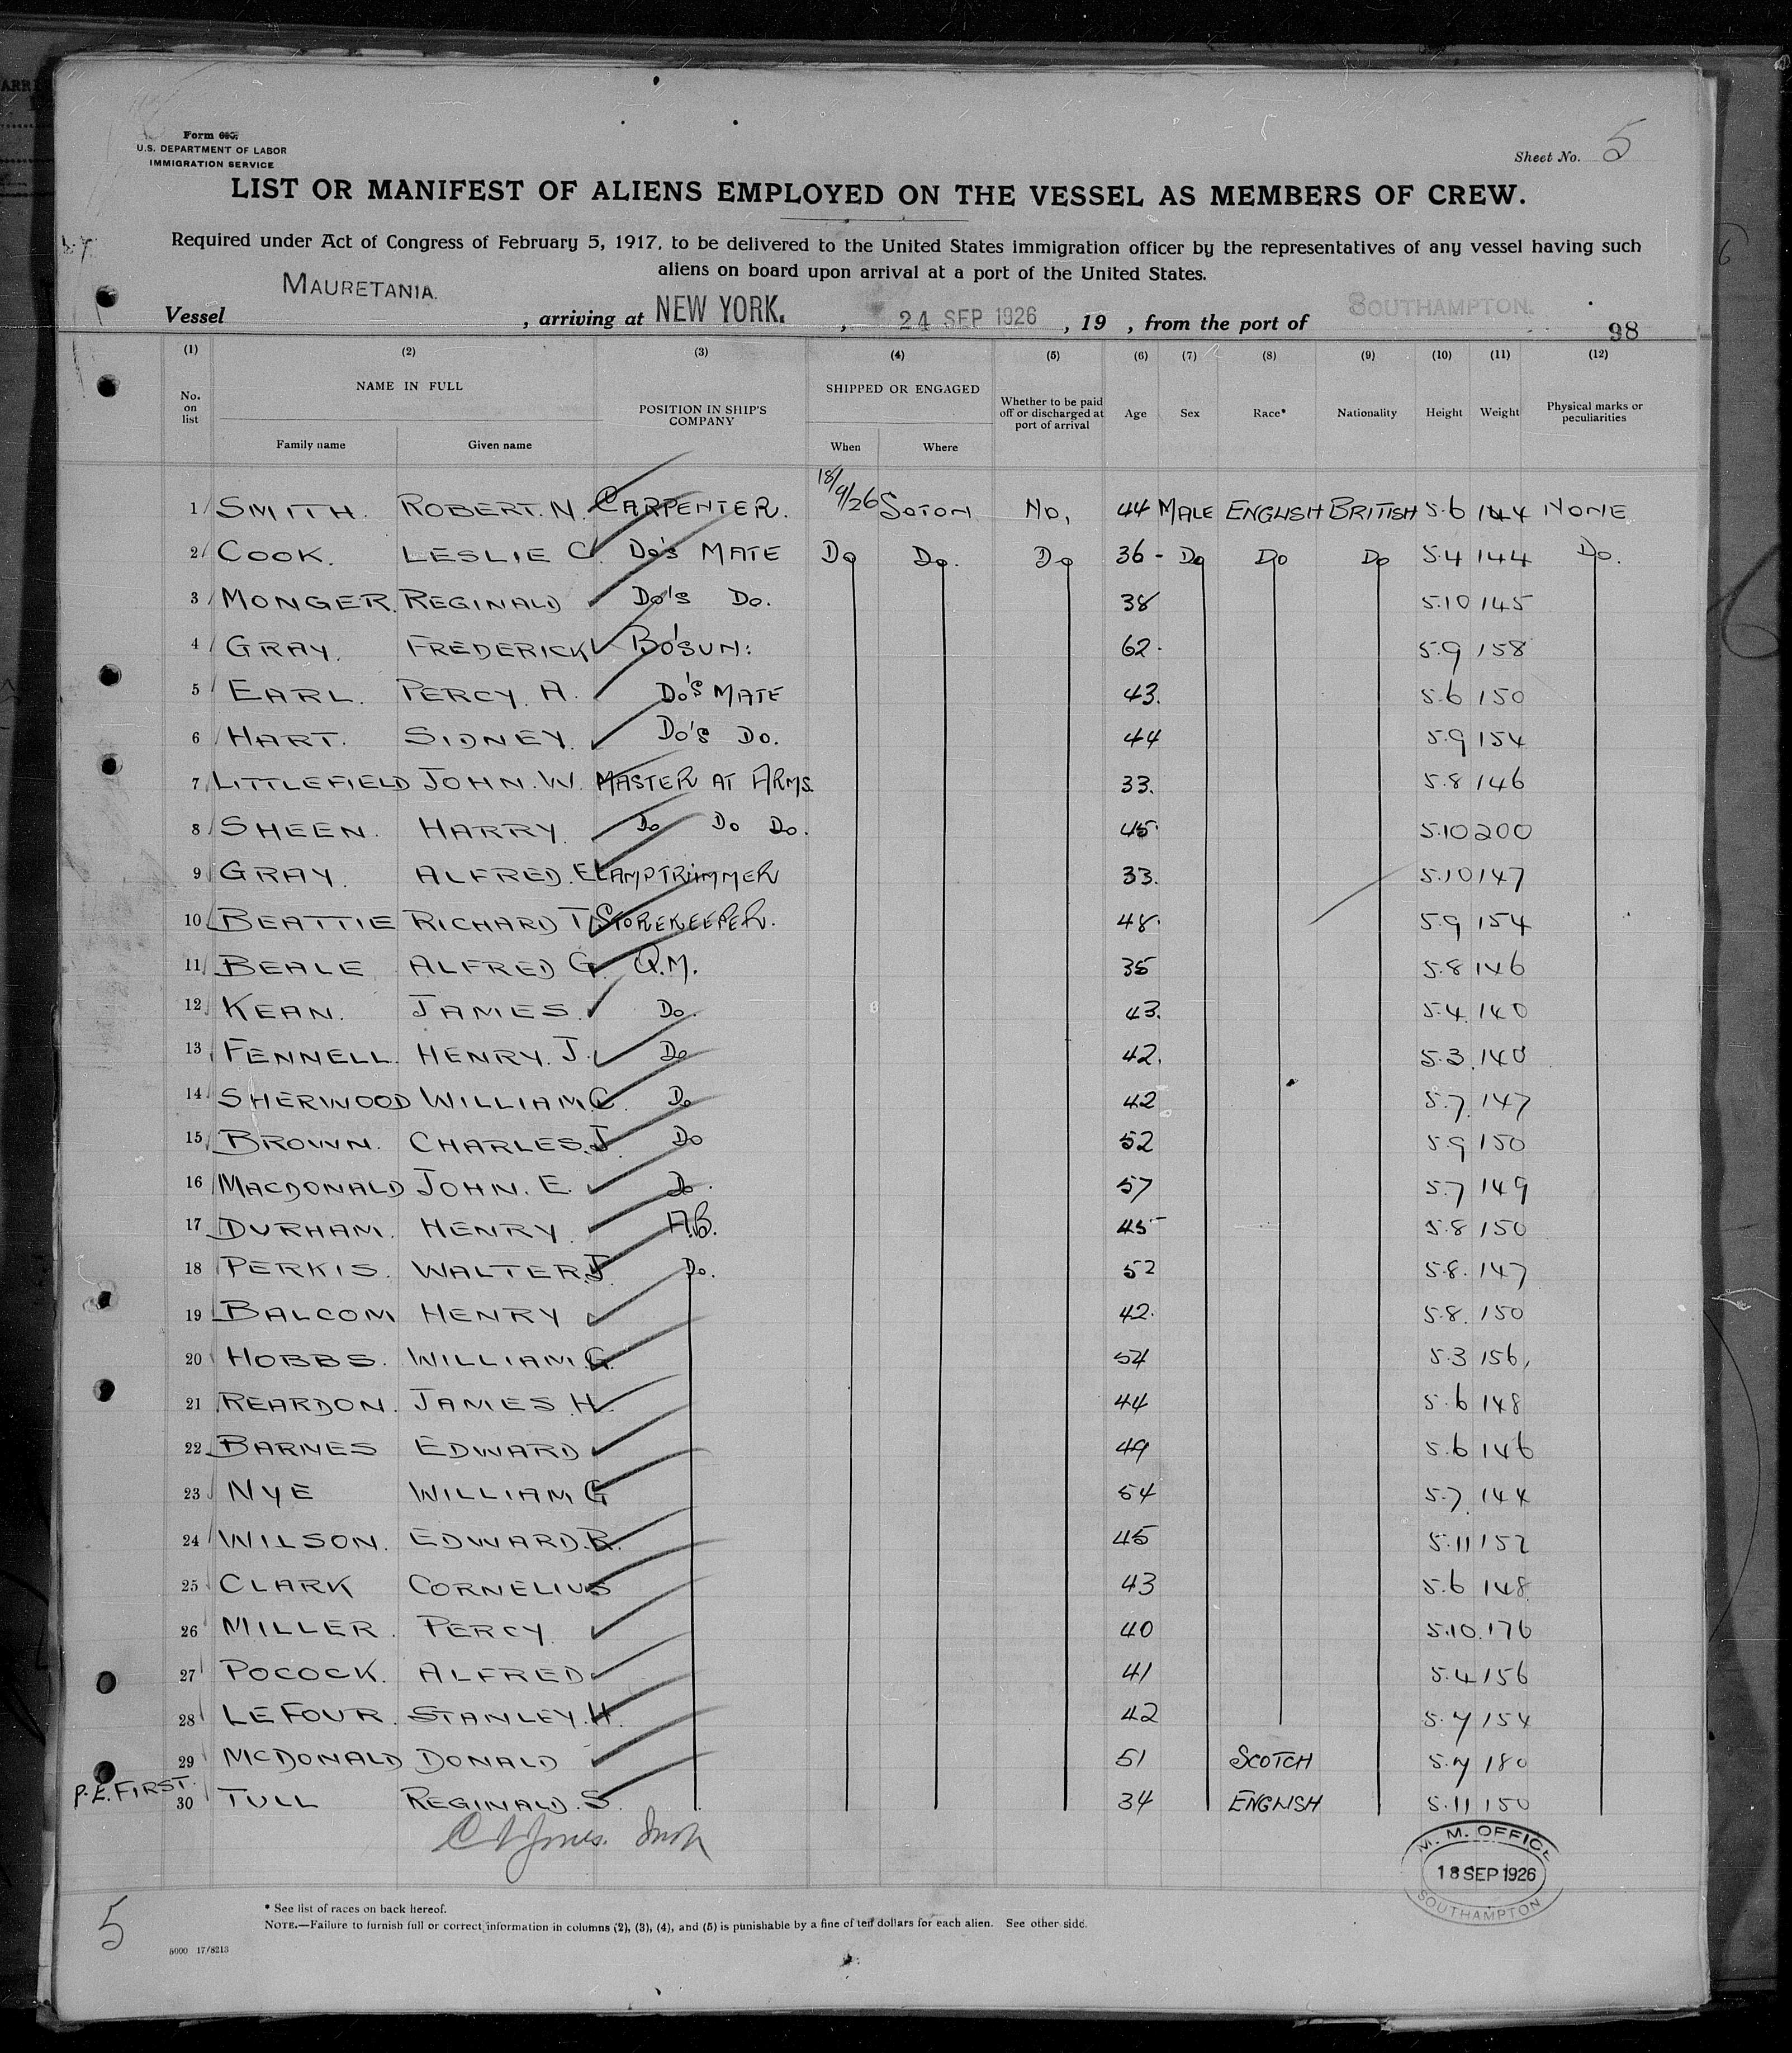 Form 680.
U.S. DEPARTMENT OF LABOR
IMMIGRATION SERVICE
Sheet No. 5
LIST OR MANIFEST OF ALIENS EMPLOYED ON THE VESSEL AS MEMBERS OF CREW.
Required under Act of Congress of February 5, 1917, to be delivered to the United States immigration officer by the representatives of any vessel having such
aliens on board upon arrival at a port of the United States.
Vessel MAURETANIA. , arriving at NEW YORK. , 24 SEP 1926 , 19 , from the port of SOUTHAMPTON.
98
(1) (2) (3) (4) (5) (6) (7) (8) (9) (10) (11) (12)
No. on list NAME IN FULL Family name Given name POSITION IN SHIP'S COMPANY SHIPPED OR ENGAGED When Where Whether to be paid off or discharged at port of arrival Age Sex Race* Nationality Height Weight Physical marks or peculiarities
1 SMITH. ROBERT. N. CARPENTER. 18/9/26 SOTON NO, 44 MALE ENGLISH BRITISH 5.6 144 NONE
2 COOK. LESLIE C. Do's MATE Do Do. Do 36 - Do Do Do 5.4 144 Do.
3 MONGER. REGINALD Do's Do. 38 5.10 145
4 GRAY. FREDERICK BO'SUN: 62. 5.9 158
5 EARL. PERCY. A. Do's MATE 43. 5.6 150
6 HART. SIDNEY. Do's Do. 44 5.9 154
7 LITTLEFIELD JOHN. W. MASTER AT ARMS. 33. 5.8 146
8 SHEEN. HARRY. Do Do Do. 45. 5.10 200
9 GRAY. ALFRED. E LAMPTRIMMER 33. 5.10 147
10 BEATTIE RICHARD T. STOREKEEPER. 48. 5.9 154
11 BEALE ALFRED G. Q.M. 35 5.8 146
12 KEAN. JAMES. Do. 43. 5.4. 140
13 FENNELL. HENRY. J. Do 42. 5.3. 140
14 SHERWOOD WILLIAM. C. Do 42 5.7. 147
15 BROWN. CHARLES. J. Do 52 5.9 150
16 MACDONALD JOHN. E. Do. 57 5.7 149
17 DURHAM. HENRY. A.B. 45 5.8 150
18 PERKIS. WALTER. J. Do. 52 5.8. 147
19 BALCOM HENRY 42. 5.8. 150
20 HOBBS. WILLIAM. G. 54 5.3 156,
21 REARDON. JAMES. H. 44 5.6 148
22 BARNES EDWARD 49 5.6 146
23 NYE WILLIAM G 54 5.7. 144
24 WILSON. EDWARD. R. 45 5.11 152
25 CLARK CORNELIUS 43 5.6 148
26 MILLER. PERCY. 40 5.10. 176
27 POCOCK. ALFRED 41 5.4 156
28 LEFOUR. STANLEY. H. 42 5.7 154
29 MCDONALD DONALD 51 SCOTCH 5.7 180
P.E. FIRST.
30 TULL REGINALD. S. 34 ENGLISH 5.11 150
Jones.
M. M. OFFICE
18 SEP 1926
SOUTHAMPTON
* See list of races on back hereof.
NOTE.—Failure to furnish full or correct information in columns (2), (3), (4), and (5) is punishable by a fine of ten dollars for each alien. See other side.
5
5000 17/8213